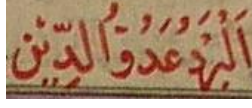 اَلْبَرْدُ عَدُوُّ الدِّيْنِ